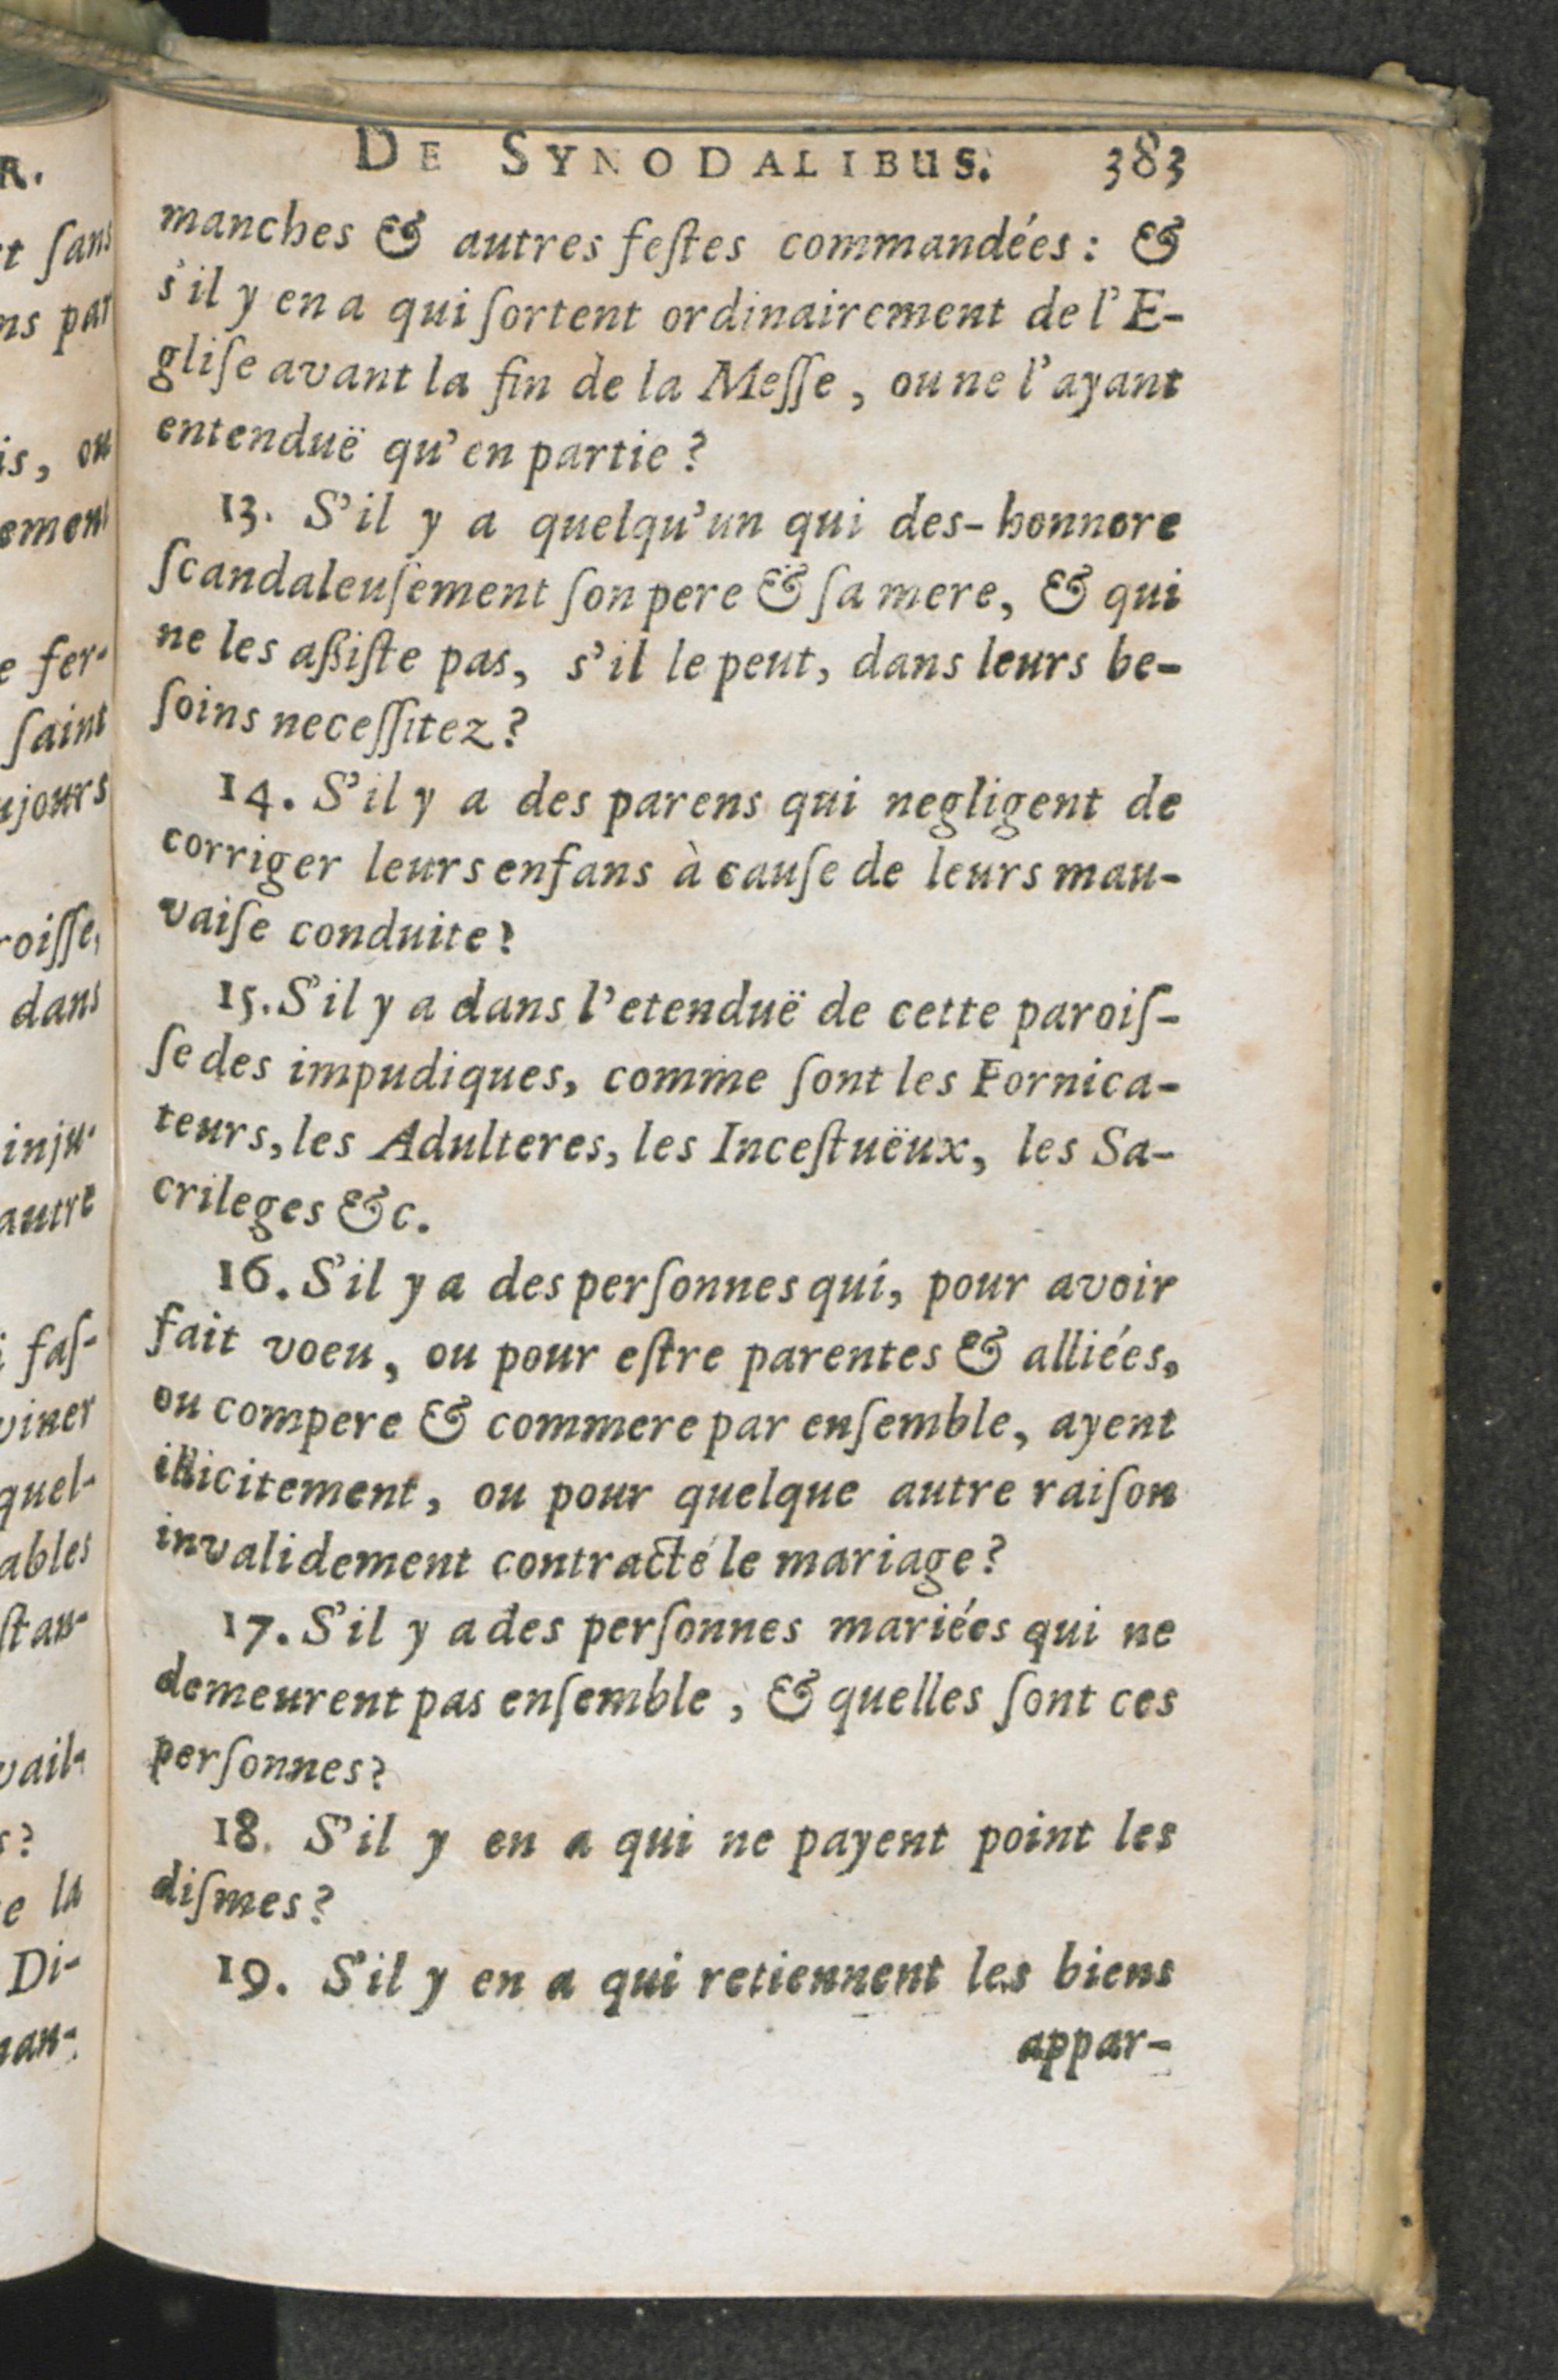 DE SYNODALIBUS. 383
manches & autres feſtes commandées: &
s'il y en a qui ſortent ordinairement de l'E-
gliſe avant la fin de la Meſſe, ou ne l'ayant
entenduë qu'en partie?
13. S'il y a quelqu'un qui des-honnore
ſcandaleuſement ſon pere & ſa mere, & qui
ne les aßiſte pas, s'il le peut, dans leurs be-
ſoins neceſſitez?
14. S'il y a des parens qui negligent de
corriger leurs enfans à cauſe de leurs mau-
vaiſe conduite?
15. S'il y a dans l'etenduë de cette paroiſ-
ſe des impudiques, comme ſont les Fornica-
teurs, les Adulteres, les Inceſtuëux, les Sa-
crileges &c.
16. S'il y a des perſonnes qui, pour avoir
fait voeu, ou pour eſtre parentes & alliées,
ou compere & commere par enſemble, ayent
illicitement, ou pour quelque autre raiſon
invalidement contracté le mariage?
17. S'il y a des perſonnes mariées qui ne
demeurent pas enſemble, & quelles ſont ces
perſonnes?
18. S'il y en a qui ne payent point les
diſmes?
19. S'il y en a qui retiennent les biens
appar-